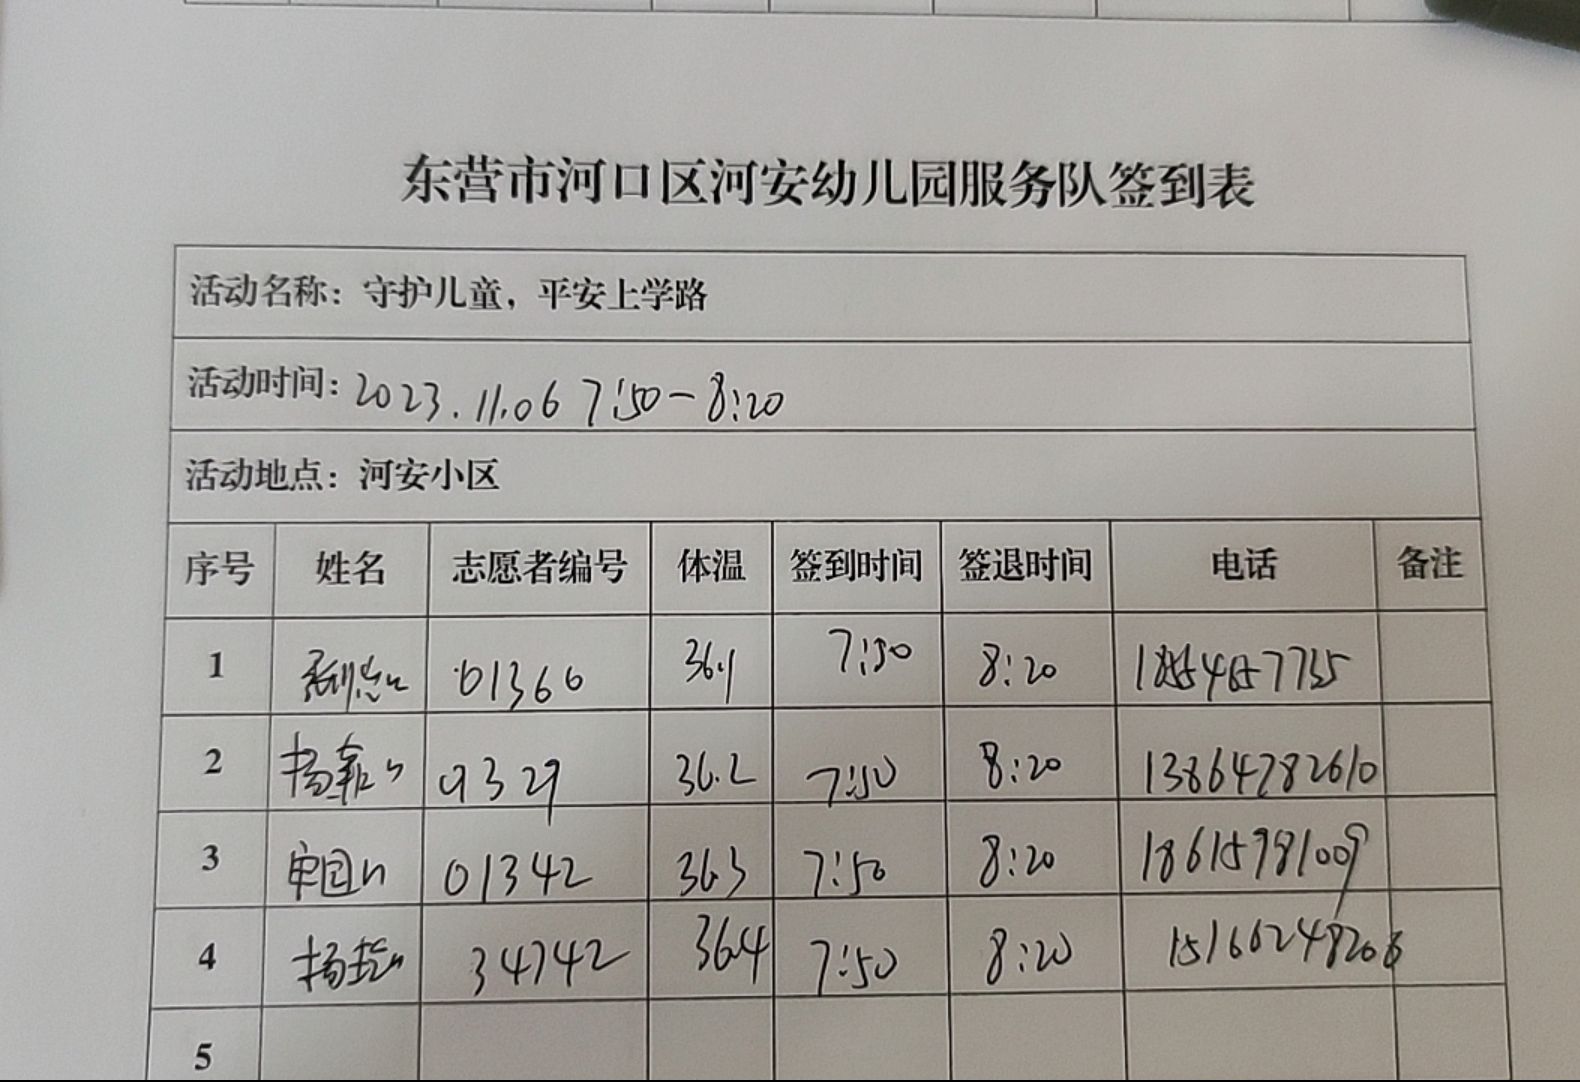 东营市河口区河安幼儿园服务队签到表
活动名称：守护儿童，平安上学路
活动时间：2023.11.06 7:50-8:20
活动地点：河安小区
序号 姓名 志愿者编号 体温 签到时间 签退时间 电话 备注
1 01366 36.1 7:50 8:20
2 杨 36.2 7:50 8:20 13864782610
3 01342 36.3 7:50 8:20 18615981009
4 杨 34742 36.4 7:50 8:20 15166248206
5